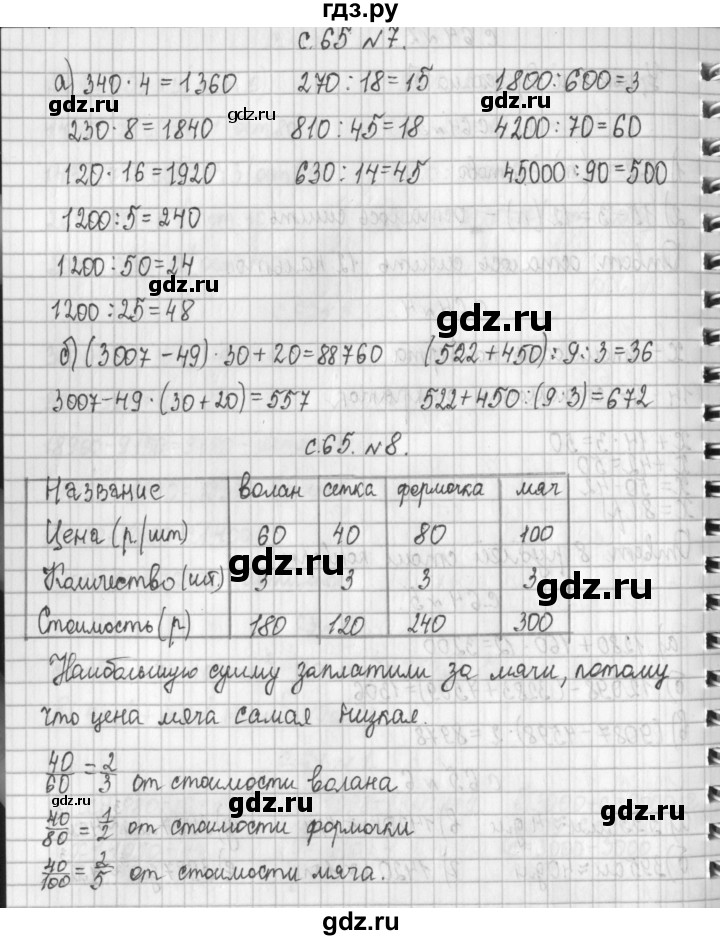 гдз.ру
с.65 №7.
а) 340 · 4 = 1360 270 : 18 = 15 1800 : 600 = 3
gdz.ru gdz.ru gdz.ru
230 · 8 = 1840 810 : 45 = 18 4200 : 70 = 60
120 · 16 = 1920 630 : 14 = 45 45000 : 90 = 500
gdz.ru
1200 : 5 = 240
1200 : 50 = 24
gdz.ru
1200 : 25 = 48
gdz.ru
б) (3007 - 49) · 30 + 20 = 88760 (522 + 450) : 9 : 3 = 36
3007 - 49 · (30 + 20) = 557 522 + 450 : (9 : 3) = 672
с.65. №8.
Название волан сетка формочка мяч
Цена (р/шт) 60 40 80 100
gdz.ru
Количество (шт) 3 3 3 3
gdz.ru
Стоимость (р) 180 120 240 300
Наибольшую сумму заплатили за мячи, потому
что цена мяча самая низкая.
40/60 = 2/3 от стоимости волана
gdz.ru gdz.ru
40/80 = 1/2 от стоимости формочки
gdz.ru
40/100 = 2/5 от стоимости мяча.
gdz.ru
гдз.ру